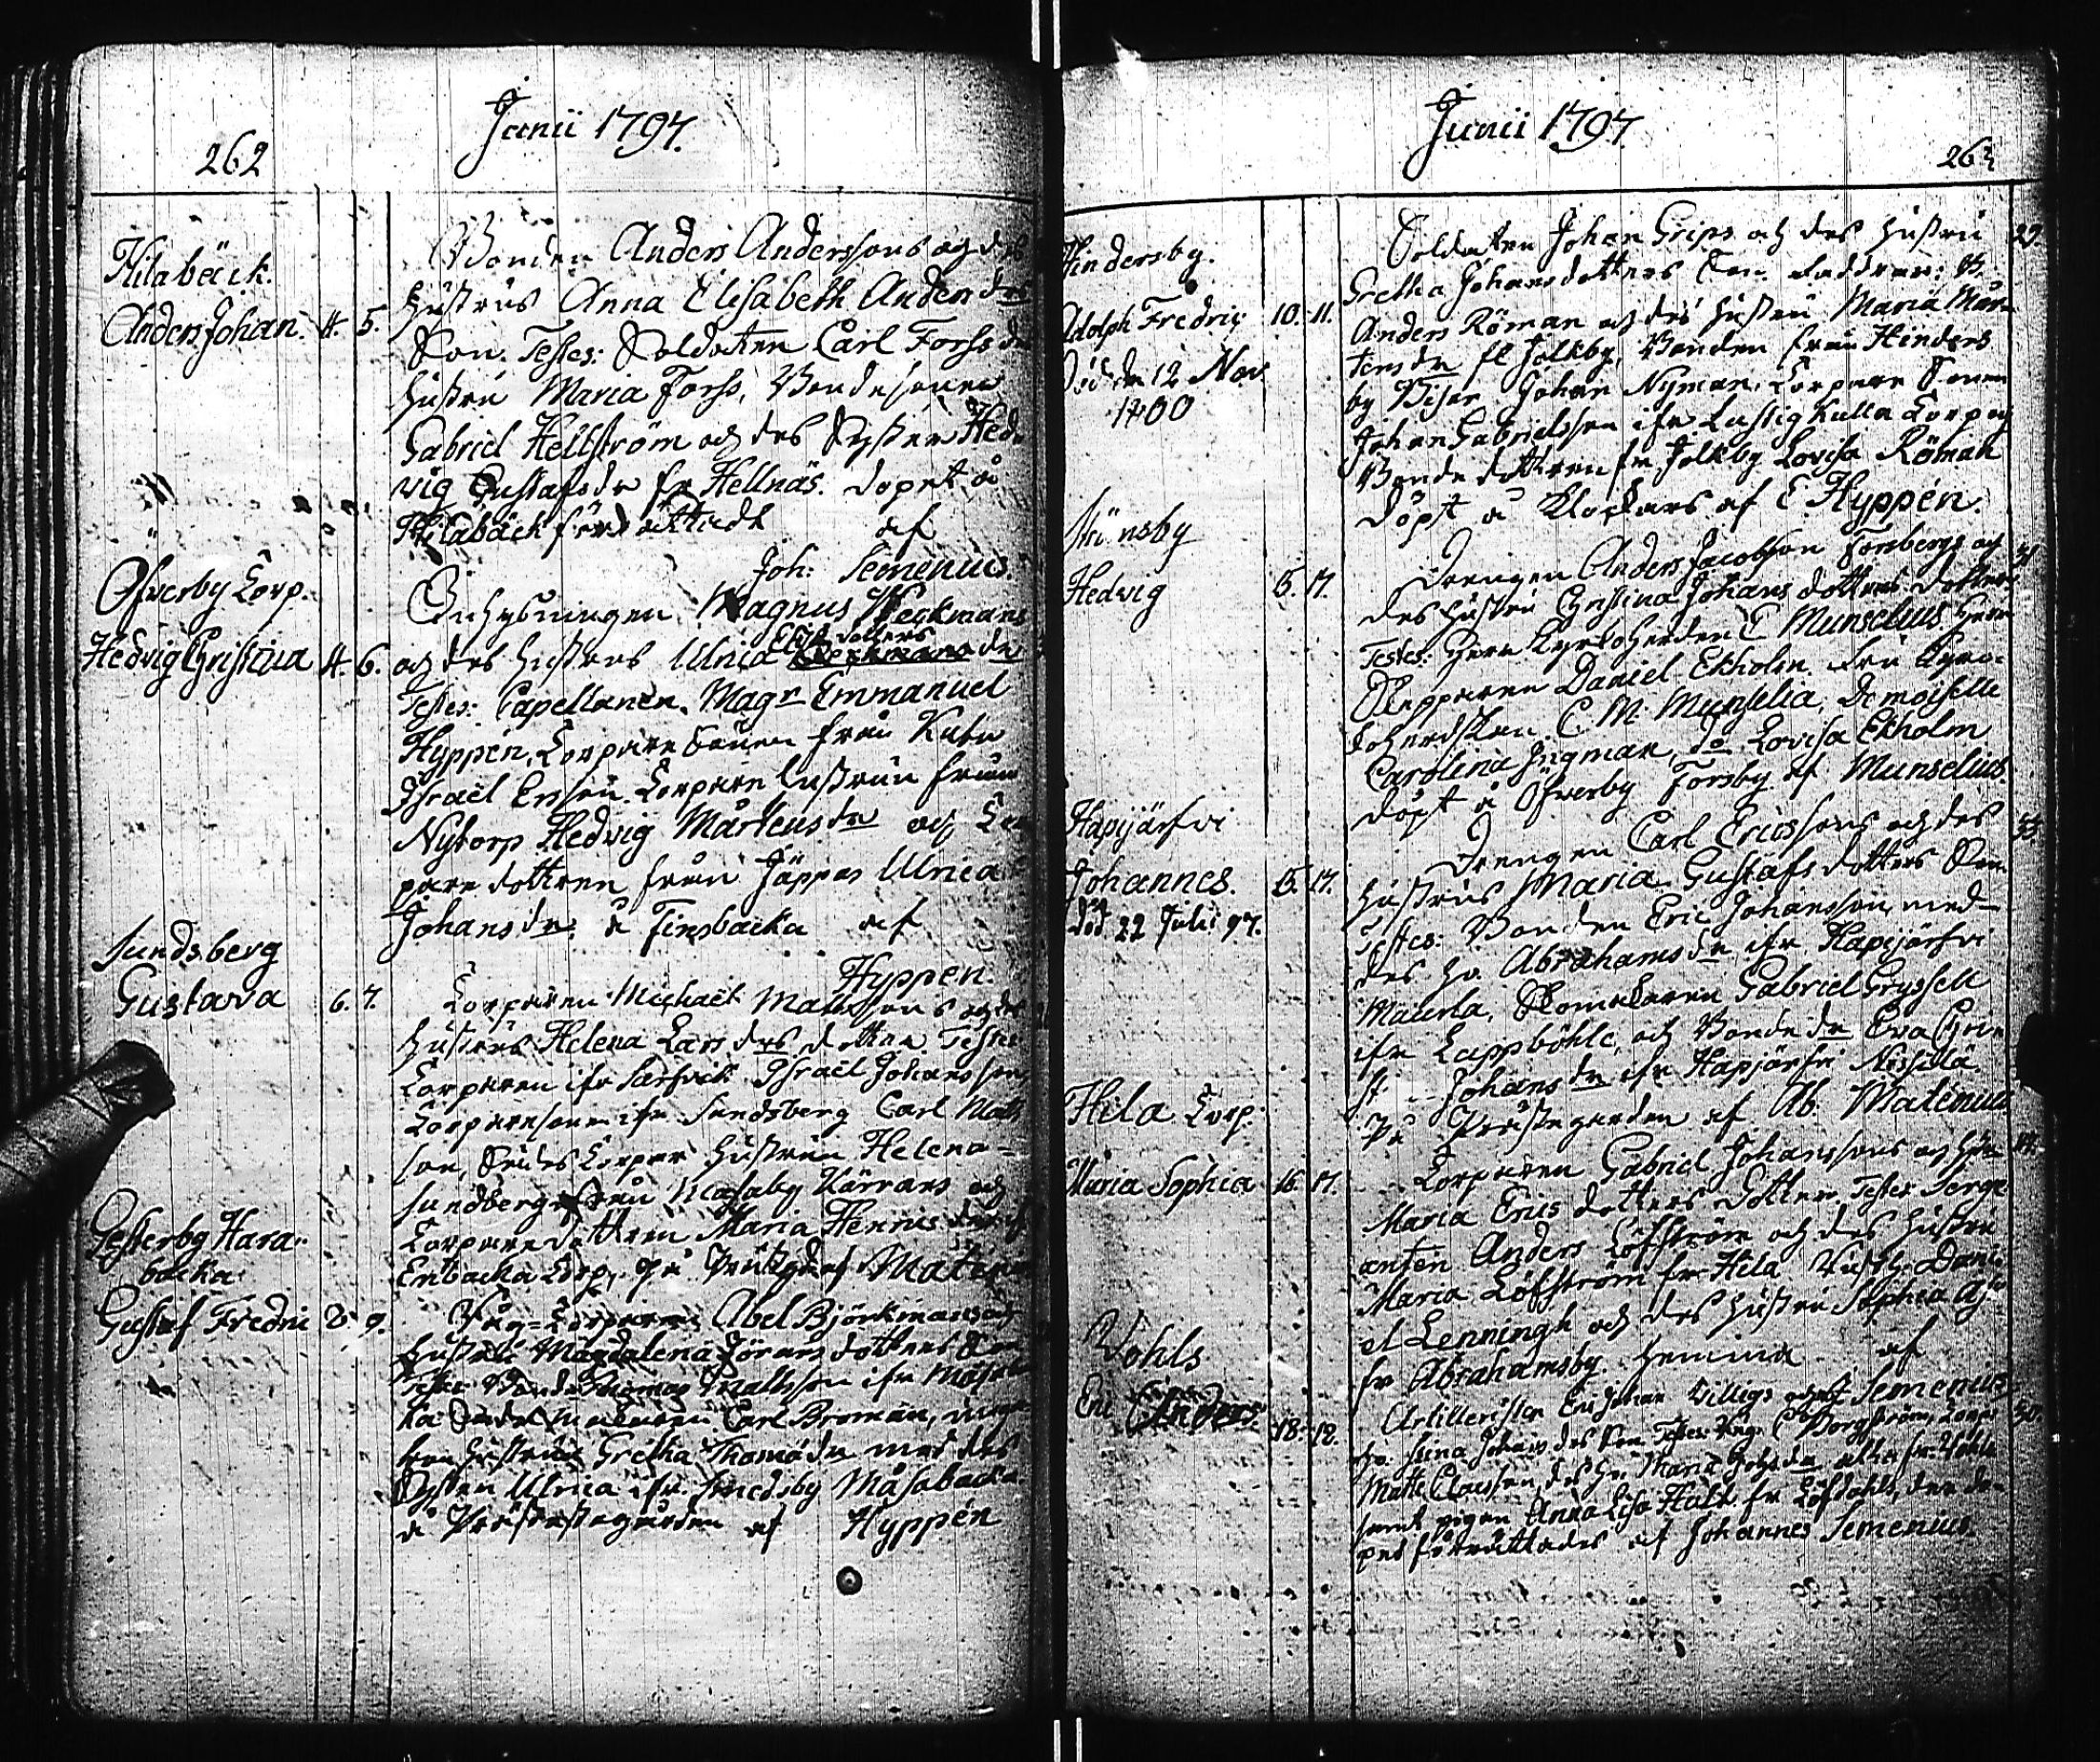 262
Junii 1797.
Hilabäck.
Anders Johan. 4. 5.
Bonden Anders Anderssons och des
hustrus Anna Elisabeth Andersdrs
Son. Testes: Soldaten Carl Forss
hustru Maria Forss, Bondesonen
Gabriel Hellström och des Syster Hed-
vig Gustafsdr fr Hellnäs. Döpet å
Hilabäck förrättadt af
Joh: Semenius.
Öfverby Torp.
Hedvig Christina 4. 6.
Inhysningen Magnus Weckmans
och des hustrus Ulrica dotters
Testes: Capellanen Magr Emmanuel
Hyppén, Torpare Sonen från
Israël Ersson. Torpare hustrun från
Nytorp Hedvig Mårtensdr och Tor
pare dottren från Jäppas Ulrica
Johansdr. å Finsbacka af
Hyppén.
Sundsberg
Gustava 6. 7.
Torparen Michaël Mattssons och des
hustrus Helena Larsdrs dotter Testes
Torparen ifr Sarfvik Israël Johansson
Torparesonen ifr Sundsberg Carl Matts
son, Torpare hustrun Helena
Sundberg från Masaby Kärrars och
Torparedottren Maria Henricsdr
Erikbacka Torp, på Prästgd af Matenius
Gesterby Hara-
backa
Gustaf Fredric 8 9.
Torparen Abel Björkmans och
hustrus Magdalena Jörans dotters Son
Testes Bond Thomas Mattsson ifr Måsa
Carl Broman,
hustru Gretha Thomædr med des
Syster Ulrica ifr Smedsby Måsabacka
å Prästegården af Hyppén
Junii 1797.
263
Hindersby.
Adolph Fredric 10. 11.
Död d 12 Nov.
1800
Soldaten Johan Grips och des hustru 29.
Gretha Johansdotters Son. Faddrar: B.
Anders Röman och des hustru Maria Mår-
tensdr fr Jolkby, Bonden från Hinders
by Johan Nyman. Torpare Sonen
Johan Gabrielsson ifr Lustig Kulla Torp och
Bondedottren fr Jolkby Lovisa Röman
Döpt å Klockars af E. Hyppén.
Hedvig 15. 17.
Drengen Anders Jacobsson Forsbergs och
des hustru Christina Johansdotters dotter
Testes: Herr Kyrkoherden C Munselius, Herr
Skepparen Daniel Ekholm. Fru Kyrko-
herdskan C. M. Munselia, Demoiselle
Carolina Ingman, do Lovisa Ekholm
Döpt å Öfverby Forsby af Munselius.
Hapijärfvi
Johannes. 15. 17.
död 22 Julii 97.
Drengen Carl Ericssons och des 33.
hustrus Maria Gustafsdotters Son
Testes: Bonden Eric Johansson, med
des hu. Abrahamsdr ifr Hapijärfvi
Maurla, Skomakaren Gabriel Gryssell
ifr Lappböhle, och Bondedr Eva Chri
st Johansdr ifr Hapjärfvi Nissilä.
På Prästegården af Ab. Matenius.
Hila Torp.
Maria Sophia 16. 17.
Torparen Gabriel Johanssons och hu
Maria Erics dotters Dotter. Testes Serge
anten Anders Löfström och des hustru
Maria Löfström fr Hila Dani
el Lenningh och des hustru Sophia
fr Abrahamsby. Hemma af
Semenius
Vohls
Eric Anders. 18. 18.
Artilleristen Eric Johan Villigs
hu. Stina Johans des Son Testes: C Borgström,
Matts Claesson, des hu. Maria Johsdr alla fr Vohls
samt pigan Anna Lisa Hult fr Löfdahls, den do-
pet förrättades af Johannes Semenius.